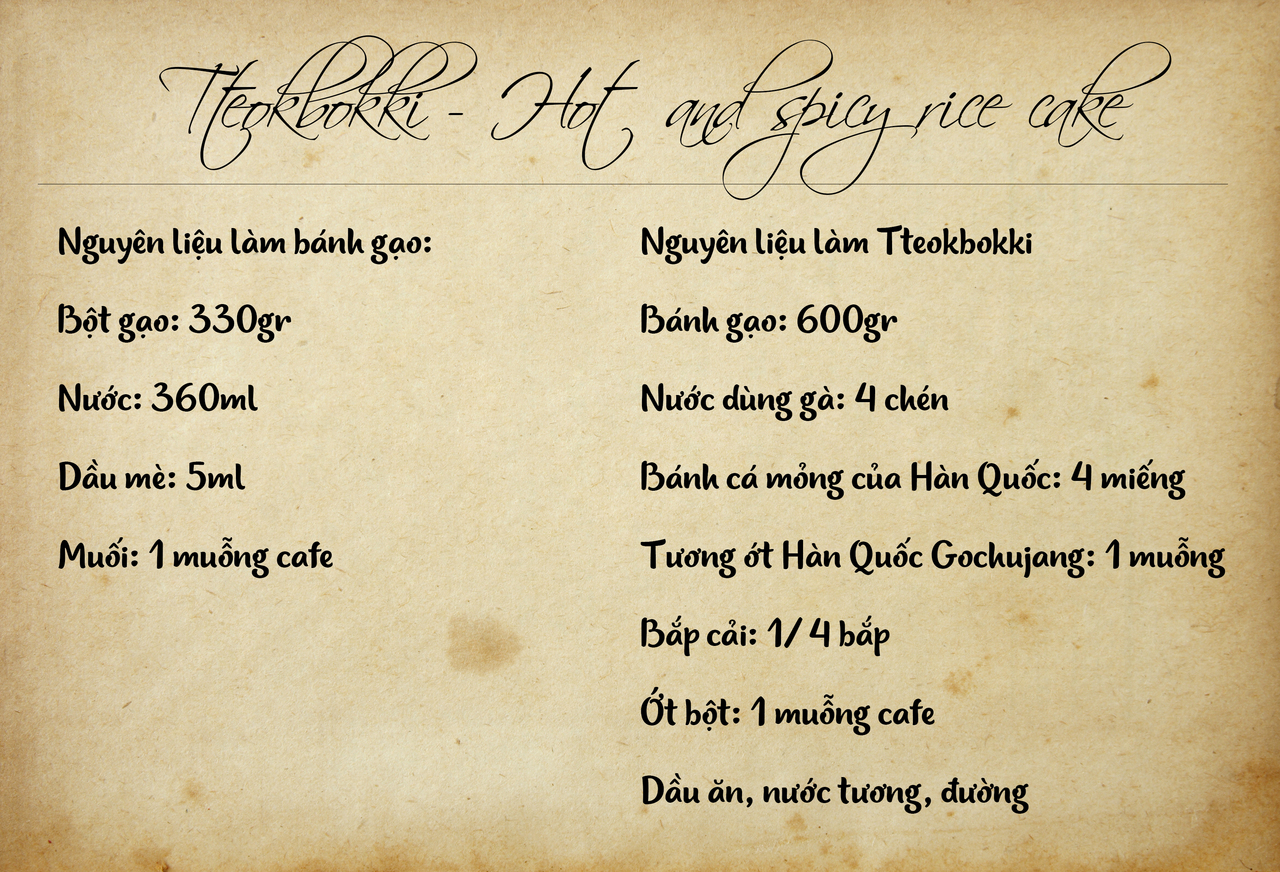 Tteokbokki - Hot and spicy rice cake
Nguyên liệu làm bánh gạo:
Bột gạo: 330gr
Nước: 360ml
Dầu mè: 5ml
Muối: 1 muỗng cafe
Nguyên liệu làm Tteokbokki
Bánh gạo: 600gr
Nước dùng gà: 4 chén
Bánh cá mỏng của Hàn Quốc: 4 miếng
Tương ớt Hàn Quốc Gochujang: 1 muỗng
Bắp cải: 1/4 bắp
Ớt bột: 1 muỗng cafe
Dầu ăn, nước tương, đường